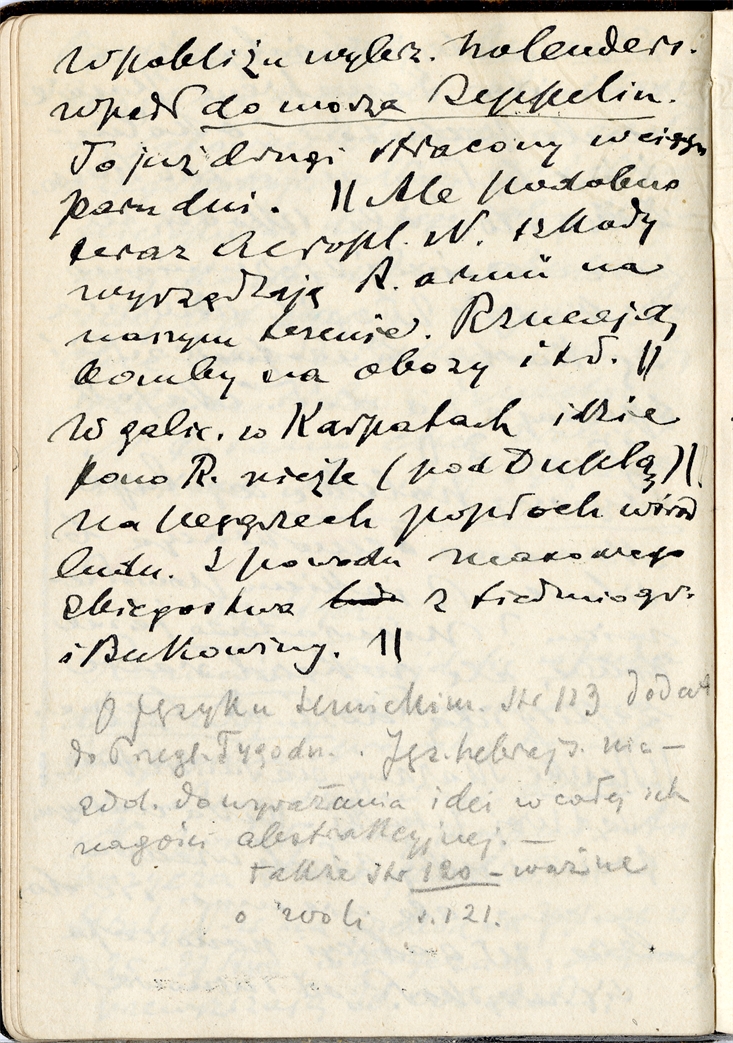 W pobliżu wybrz. holenders.
wpadł do morza Zeppelin.
To już drugi stracony w ciągu
paru dni. || Ale podobno
teraz Aeropl. N. szkody
wyrządzają R. armii na
naszym terenie. Rzucają
bomby na obozy itd. ||
W galic. w Karpatach idzie
pono R. nieźle (pod Duklą) ||
na Węgrzech popłoch wśród
ludu. Z powodu masowego
zbiegostwa z Siedmiogr.
i Bukowiny. ||
O języku semickim. Str 113 dodat
do Przegl. Tygodn. . Jęz. hebrajs. nie-
zdol. do wyrażania idei w całej ich
nagości abstrakcyjnej. —
także str 120 - ważne
o woli s. 121.